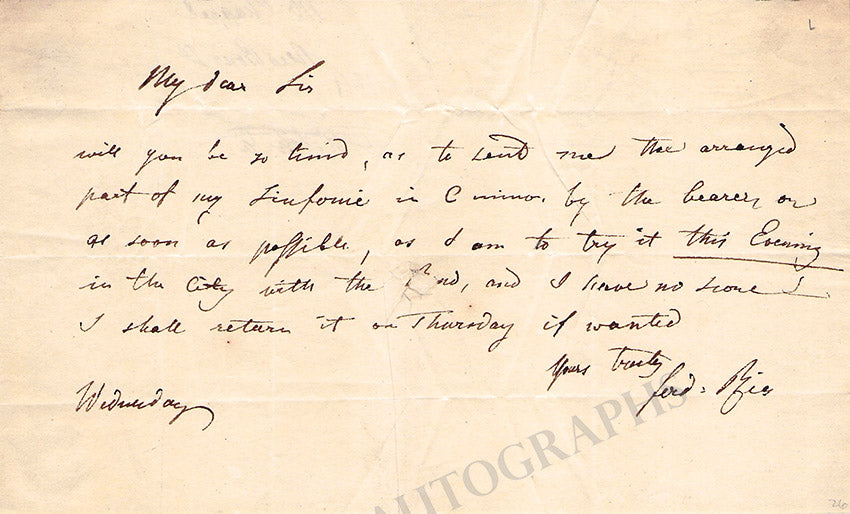 My dear Sir
will you be so kind, as to sent me the arranged
part of my Sinfonie in C minor by the bearer, or
as soon as possible, as I am to try it this Evening
in the City with the 2nd, and I have no score
I shall return it on Thursday if wanted
Yours truly
Wednesday
Ferd: Ries
AUTOGRAPHS